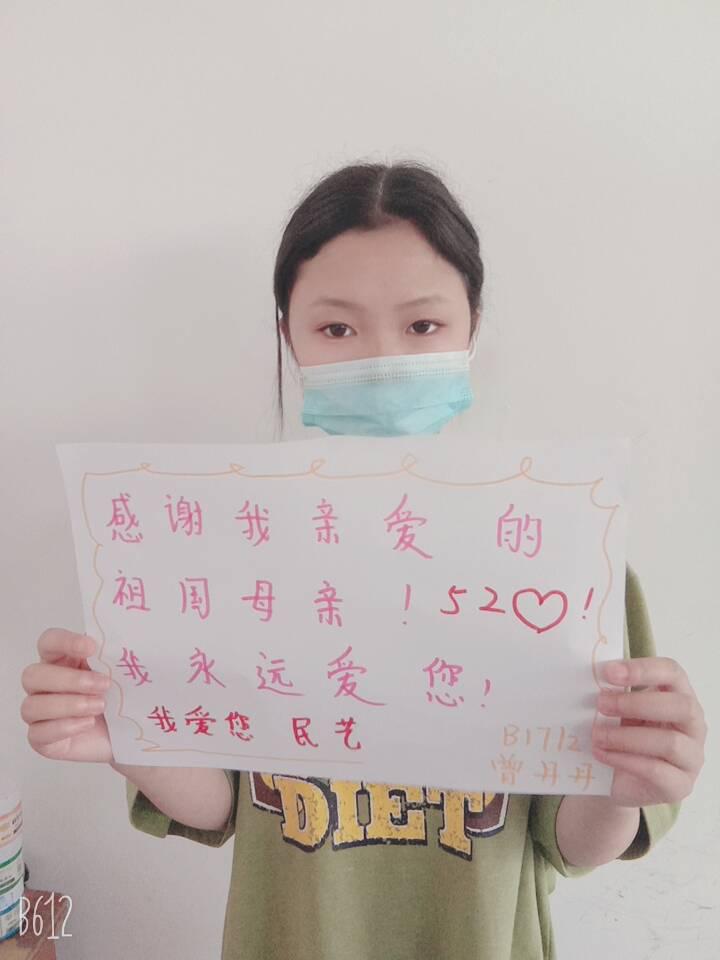 感谢我亲爱的
祖国母亲！520！
我永远爱您！
我爱您 民艺
B1712
曾丹丹
DIET
B612